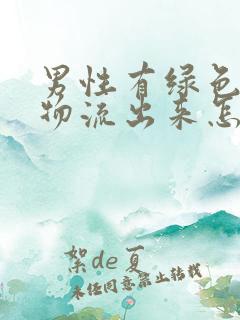 男性有绿色
物流出来怎
絮de夏
未经同意禁止转载